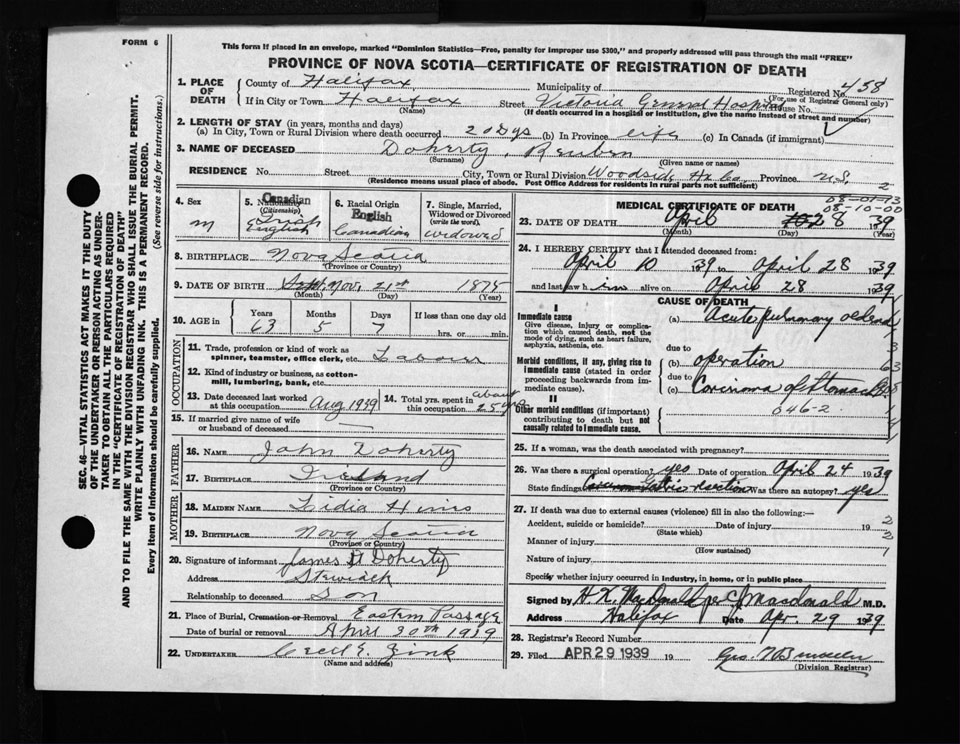 FORM 6
This form if placed in an envelope, marked "Dominion Statistics—Free, penalty for improper use $300," and properly addressed will pass through the mail "FREE"
PROVINCE OF NOVA SCOTIA—CERTIFICATE OF REGISTRATION OF DEATH
1. PLACE OF DEATH County of Halifax Municipality of Registered No. 458
(For use of Registrar General only)
If in City or Town Halifax Street Victoria General Hospital House No.
(Name) (If death occurred in a hospital or institution, give the name instead of street and number)
2. LENGTH OF STAY (in years, months and days)
(a) In City, Town or Rural Division where death occurred 20 Dys (b) In Province life (c) In Canada (if immigrant)
3. NAME OF DECEASED Doherty, Reuben
(Surname) (Given name or names)
RESIDENCE No. Street City, Town or Rural Division Woodside Hx Co. Province N.S. 2
(Residence means usual place of abode. Post Office Address for residents in rural parts not sufficient)
4. Sex M
5. Nationality (Citizenship) Canadian Irish English
6. Racial Origin English Canadian
7. Single, Married, Widowed or Divorced (write the word) widowed
8. BIRTHPLACE Nova Scotia
(Province or Country)
9. DATE OF BIRTH Sept. Nov. 21st 1875
(Month) (Day) (Year)
10. AGE in Years Months Days If less than one day old
63 5 7 hrs. or min.
OCCUPATION
11. Trade, profession or kind of work as spinner, teamster, office clerk, etc. Labour
12. Kind of industry or business, as cotton-mill, lumbering, bank, etc.
13. Date deceased last worked at this occupation Aug 1939
14. Total yrs. spent in this occupation about 25 yrs
15. If married give name of wife or husband of deceased —
FATHER
16. NAME John Doherty
17. BIRTHPLACE Ireland
(Province or Country)
MOTHER
18. MAIDEN NAME Lidia
19. BIRTHPLACE Nova Scotia
(Province or Country)
20. Signature of informant James Doherty
Address Stewiack
Relationship to deceased Son
21. Place of Burial, Cremation or Removal Eastern Passage
Date of burial or removal April 30th 1939
22. UNDERTAKER Cecil E. Zink
(Name and address)
MEDICAL CERTIFICATE OF DEATH
08-01-13
08-10-00
23. DATE OF DEATH April 28 1939
(Month) (Day) (Year)
24. I HEREBY CERTIFY that I attended deceased from:
April 10 1939 to April 28 1939
and last saw him alive on April 28 1939
CAUSE OF DEATH
I
Immediate cause
Give disease, injury or complication which caused death, not the mode of dying, such as heart failure, asphyxia, asthenia, etc.
(a) Acute pulmonary oedema
due to
Morbid conditions, if any, giving rise to immediate cause (stated in order proceeding backwards from immediate cause).
(b) operation
due to
(c) Carcinoma of stomach
II
Other morbid conditions (if important) contributing to death but not causally related to immediate cause.
046-2
25. If a woman, was the death associated with pregnancy?
26. Was there a surgical operation? yes Date of operation April 24 1939
State findings Gastric resection Was there an autopsy? yes
27. If death was due to external causes (violence) fill in also the following:—
Accident, suicide or homicide? Date of injury 19
(State which)
Manner of injury
(How sustained)
Nature of injury
Specify whether injury occurred in industry, in home, or in public place
Signed by H. K. MacDonald per C. Macdonald M.D.
Address Halifax Date Apr. 29 1939
28. Registrar's Record Number
29. Filed APR 29 1939 19
(Division Registrar)
SEC. 46—VITAL STATISTICS ACT MAKES IT THE DUTY OF THE UNDERTAKER OR PERSON ACTING AS UNDERTAKER TO OBTAIN ALL THE PARTICULARS REQUIRED IN THE "CERTIFICATE OF REGISTRATION OF DEATH"
AND TO FILE THE SAME WITH THE DIVISION REGISTRAR WHO SHALL ISSUE THE BURIAL PERMIT.
WRITE PLAINLY WITH UNFADING INK. THIS IS A PERMANENT RECORD.
Every item of information should be carefully supplied. (See reverse side for instructions.)